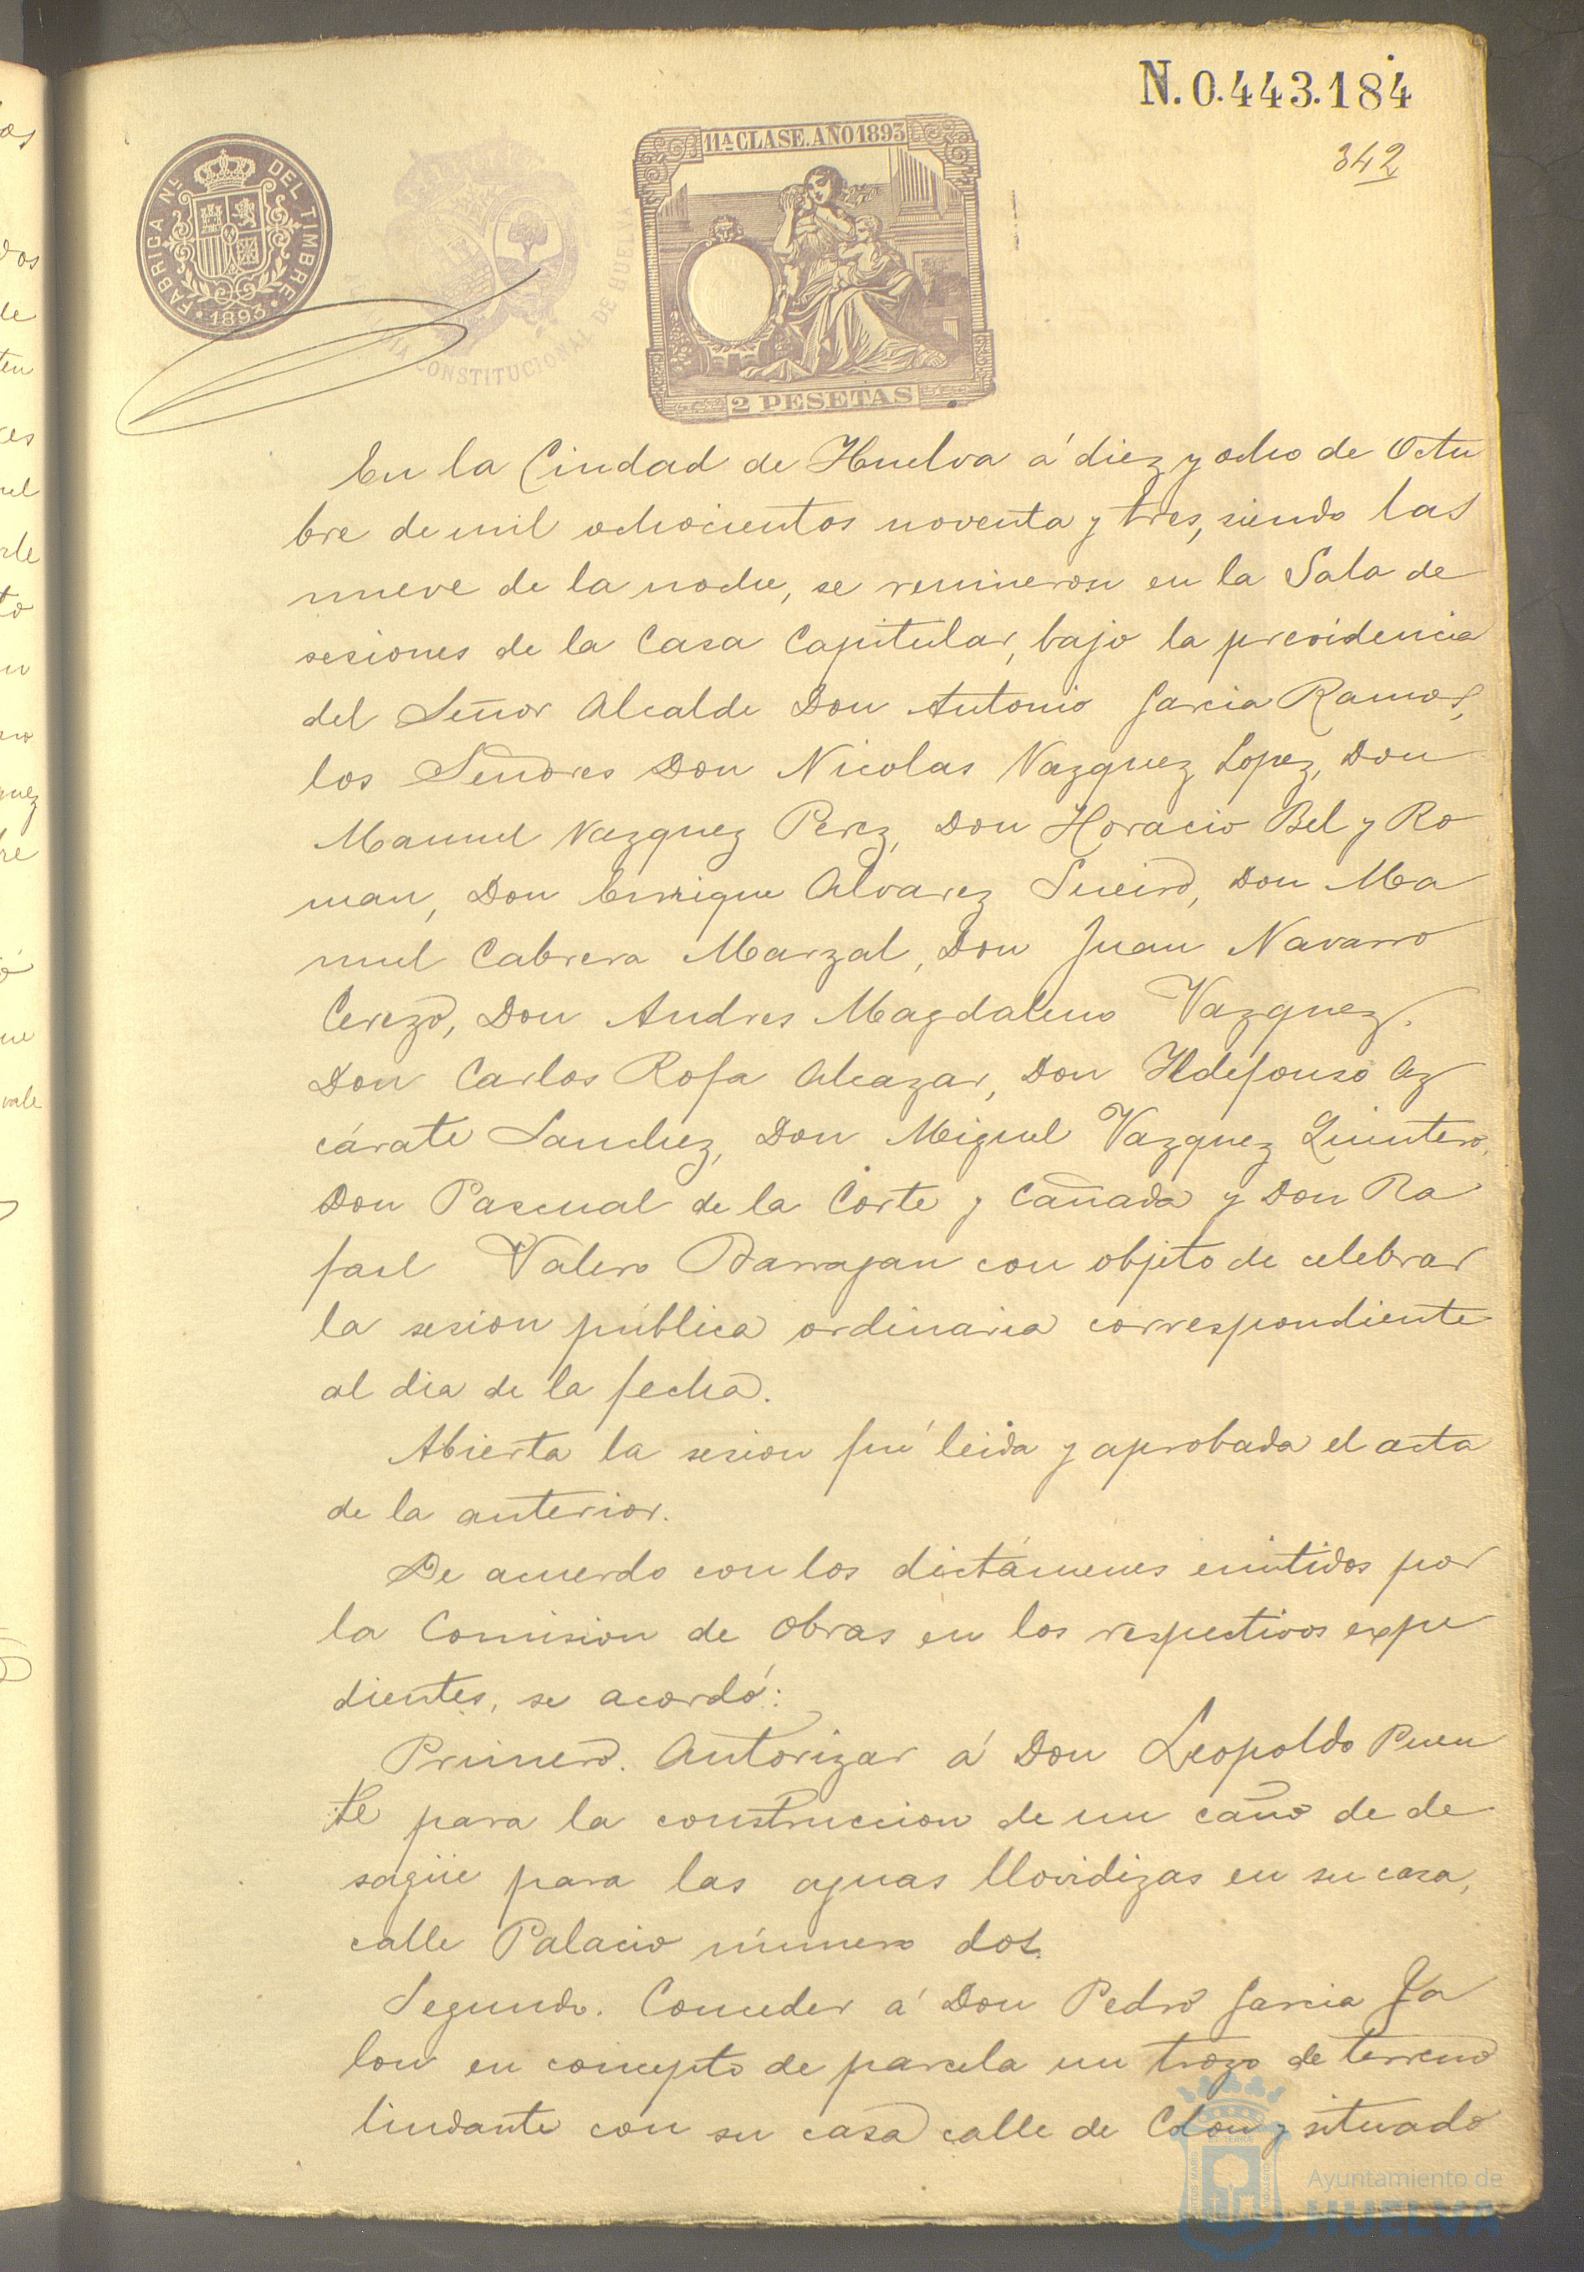 N. 0.443.184
342
FABRICA Nˡ DEL TIMBRE
1893
ALCALDIA CONSTITUCIONAL DE HUELVA
11ª CLASE. AÑO 1893
2 PESETAS
En la Ciudad de Huelva á diez y ocho de Octu
bre de mil ochocientos noventa y tres, siendo las
nueve de la noche, se reunieron en la Sala de
sesiones de la Casa Capitular, bajo la presidencia
del Señor Alcalde Don Antonio Garcia Ramos,
los Señores Don Nicolas Vazquez Lopez, Don
Manuel Vazquez Perez, Don Horacio Bel y Ro
man, Don Enrique Alvarez Sueiro, Don Ma
nuel Cabrera Marzal, Don Juan Navarro
Cerezo, Don Andres Magdaleno Vazquez.
Don Carlos Rofa Alcazar, Don Ildefonso Az
cárate Sanchez, Don Miguel Vazquez Quintero,
Don Pascual de la Corte y Cañada y Don Ra
fael Valero Barragan con objeto de celebrar
la sesion pública ordinaria correspondiente
al dia de la fecha.
Abierta la sesion fué leida y aprobada el acta
de la anterior.
De acuerdo con los dictámenes emitidos por
la Comision de obras en los respectivos expe
dientes, se acordó:
Primero. Autorizar á Don Leopoldo Puen
te para la construccion de un caño de de
sagüe para las aguas llovidizas en su casa,
calle Palacio número dos.
Segundo. Conceder á Don Pedro Garcia Ja
lon en concepto de parcela un trozo de terreno
lindante con su casa calle de Colon y situado
Ayuntamiento de
HUELVA